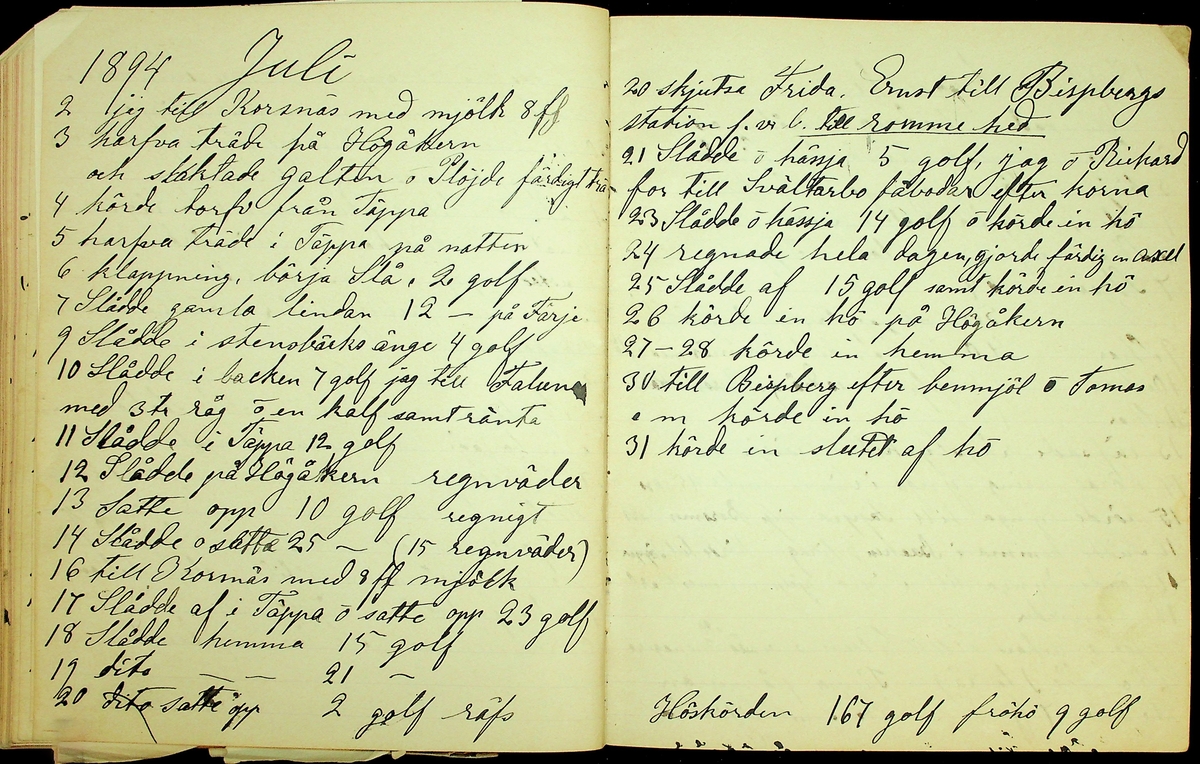 1894 Juli
2 jag till Korsnäs med mjölk 8 ff
3 harfva träde på Högåkern
och slaktade galten o Plöjde färdigt trä-
4 körde torfv från Täppa
5 harfva träde i Täppa på natten
6 klappning, börja Slå, 2 golf
7 Slådde gamla lindan 12 — på Färje
9 Slådde i stensbäcks änge 4 golf
10 Slådde i backen 7 golf jag till Falun
med 3 tr råg o en kalf samt ränta
11 Slådde i Täppa 12 golf
12 Slådde på Högåkern regnväder
13 Satte opp 10 golf regnigt
14 Slådde o satta 25 — (15 regnväder)
16 till Korsnäs med 8 ff mjölk
17 Slådde af i Täppa o satte opp 23 golf
18 Slådde hemma 15 golf
19 dito — — 21 —
20 dito satte opp 2 golf räfs
20 skjutsa Frida, Ernst till Bispbergs
station f. v. b. till romme hed
21 Slådde o hässja 5 golf, jag o Richard
for till Svältarbo fäbodar efter korna
23 Slådde o hässja 14 golf o körde in hö
24 regnade hela dagen, gjorde färdig en axel
25 Slådde af 15 golf samt körde in hö
26 körde in hö på Högåkern
27–28 körde in hemma
30 till Bispberg efter benmjöl o Tomas
e m körde in hö
31 körde in slutet af hö
Höskörden 167 golf fröhö 9 golf